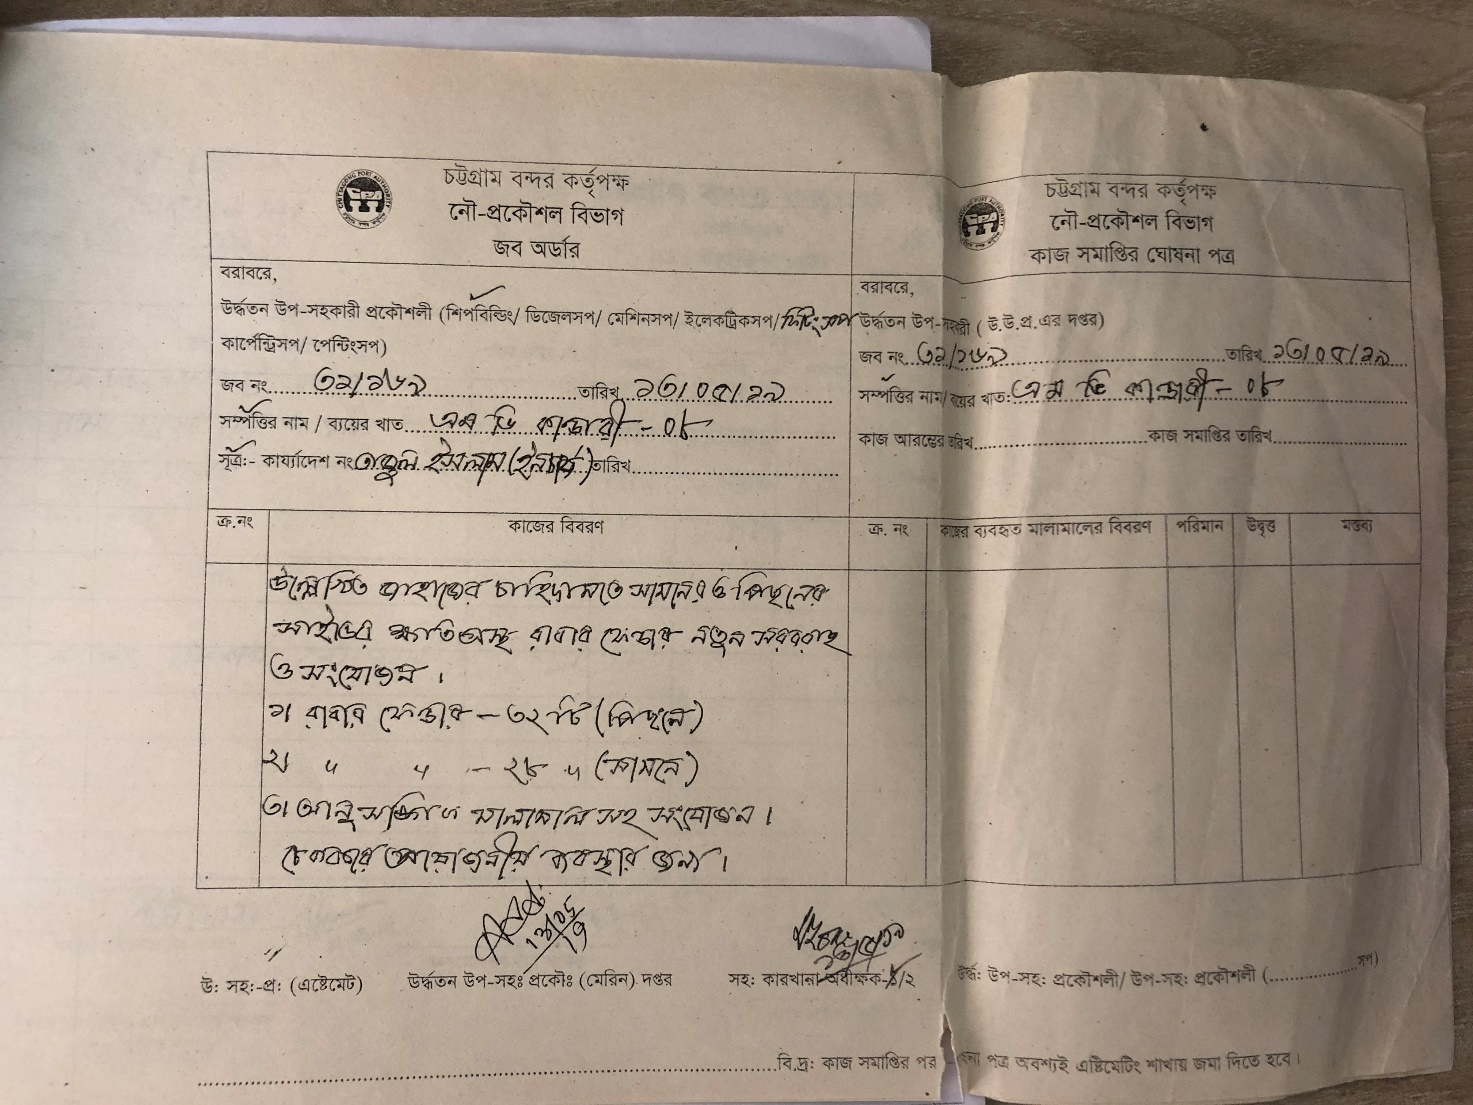 চট্টগ্রাম বন্দর কর্তৃপক্ষ
নৌ-প্রকৌশল বিভাগ
জব অর্ডার
বরাবরে,
উর্দ্ধতন উপ-সহকারী প্রকৌশলী (শিপবিল্ডিং/ ডিজেলসপ/ মেশিনসপ/ ইলেকট্রিকসপ/ ফিটিং সপ
কার্পেন্ট্রিসপ/ পেন্টিংসপ)
জব নং ৩২/১৬৯ তারিখ ২৩/০৫/১৯
সম্পত্তির নাম / ব্যয়ের খাত এম ভি কান্ডারী - ০৮
সূত্রঃ- কার্য্যাদেশ নং ইসলাম (ইনচার্জ) তারিখ
ক্র.নং কাজের বিবরণ
উল্লেখিত জাহাজের চাহিদামতে সামনের ও পিছনের
সাইডের ক্ষতিগ্রস্থ রাবার ফেন্ডার নতুন সরবরাহ
ও সংযোজন ।
১। রাবার ফেন্ডার – ৩২ টি (পিছনে)
২। " " – ২৮ " (সামনে)
৩। আনুসাঙ্গিক মালামাল সহ সংযোজন ।
প্রয়োজনীয় ব্যবস্থার জন্য ।
উ: সহ:-প্র: (এষ্টিমেট)
উর্দ্ধতন উপ-সহঃ প্রকৌঃ (মেরিন) দপ্তর
সহ: কারখানা অধীক্ষক-১/২
চট্টগ্রাম বন্দর কর্তৃপক্ষ
নৌ-প্রকৌশল বিভাগ
কাজ সমাপ্তির ঘোষনা পত্র
বরাবরে,
উর্দ্ধতন উপ-সহকারী ( উ.উ.প্র.এর দপ্তর)
জব নং ৩২/১৬৯ তারিখ ২৩/০৫/১৯
সম্পত্তির নাম/ ব্যয়ের খাত: এম ভি কান্ডারী - ০৮
কাজ আরম্ভের তারিখ কাজ সমাপ্তির তারিখ
ক্র. নং কাজের ব্যবহৃত মালামালের বিবরণ পরিমান উদ্বৃত্ত মন্তব্য
উর্দ্ধ: উপ-সহ: প্রকৌশলী/ উপ-সহ: প্রকৌশলী (..................সপ)
বি.দ্র: কাজ সমাপ্তির পর পত্র অবশ্যই এষ্টিমেটিং শাখায় জমা দিতে হবে ।